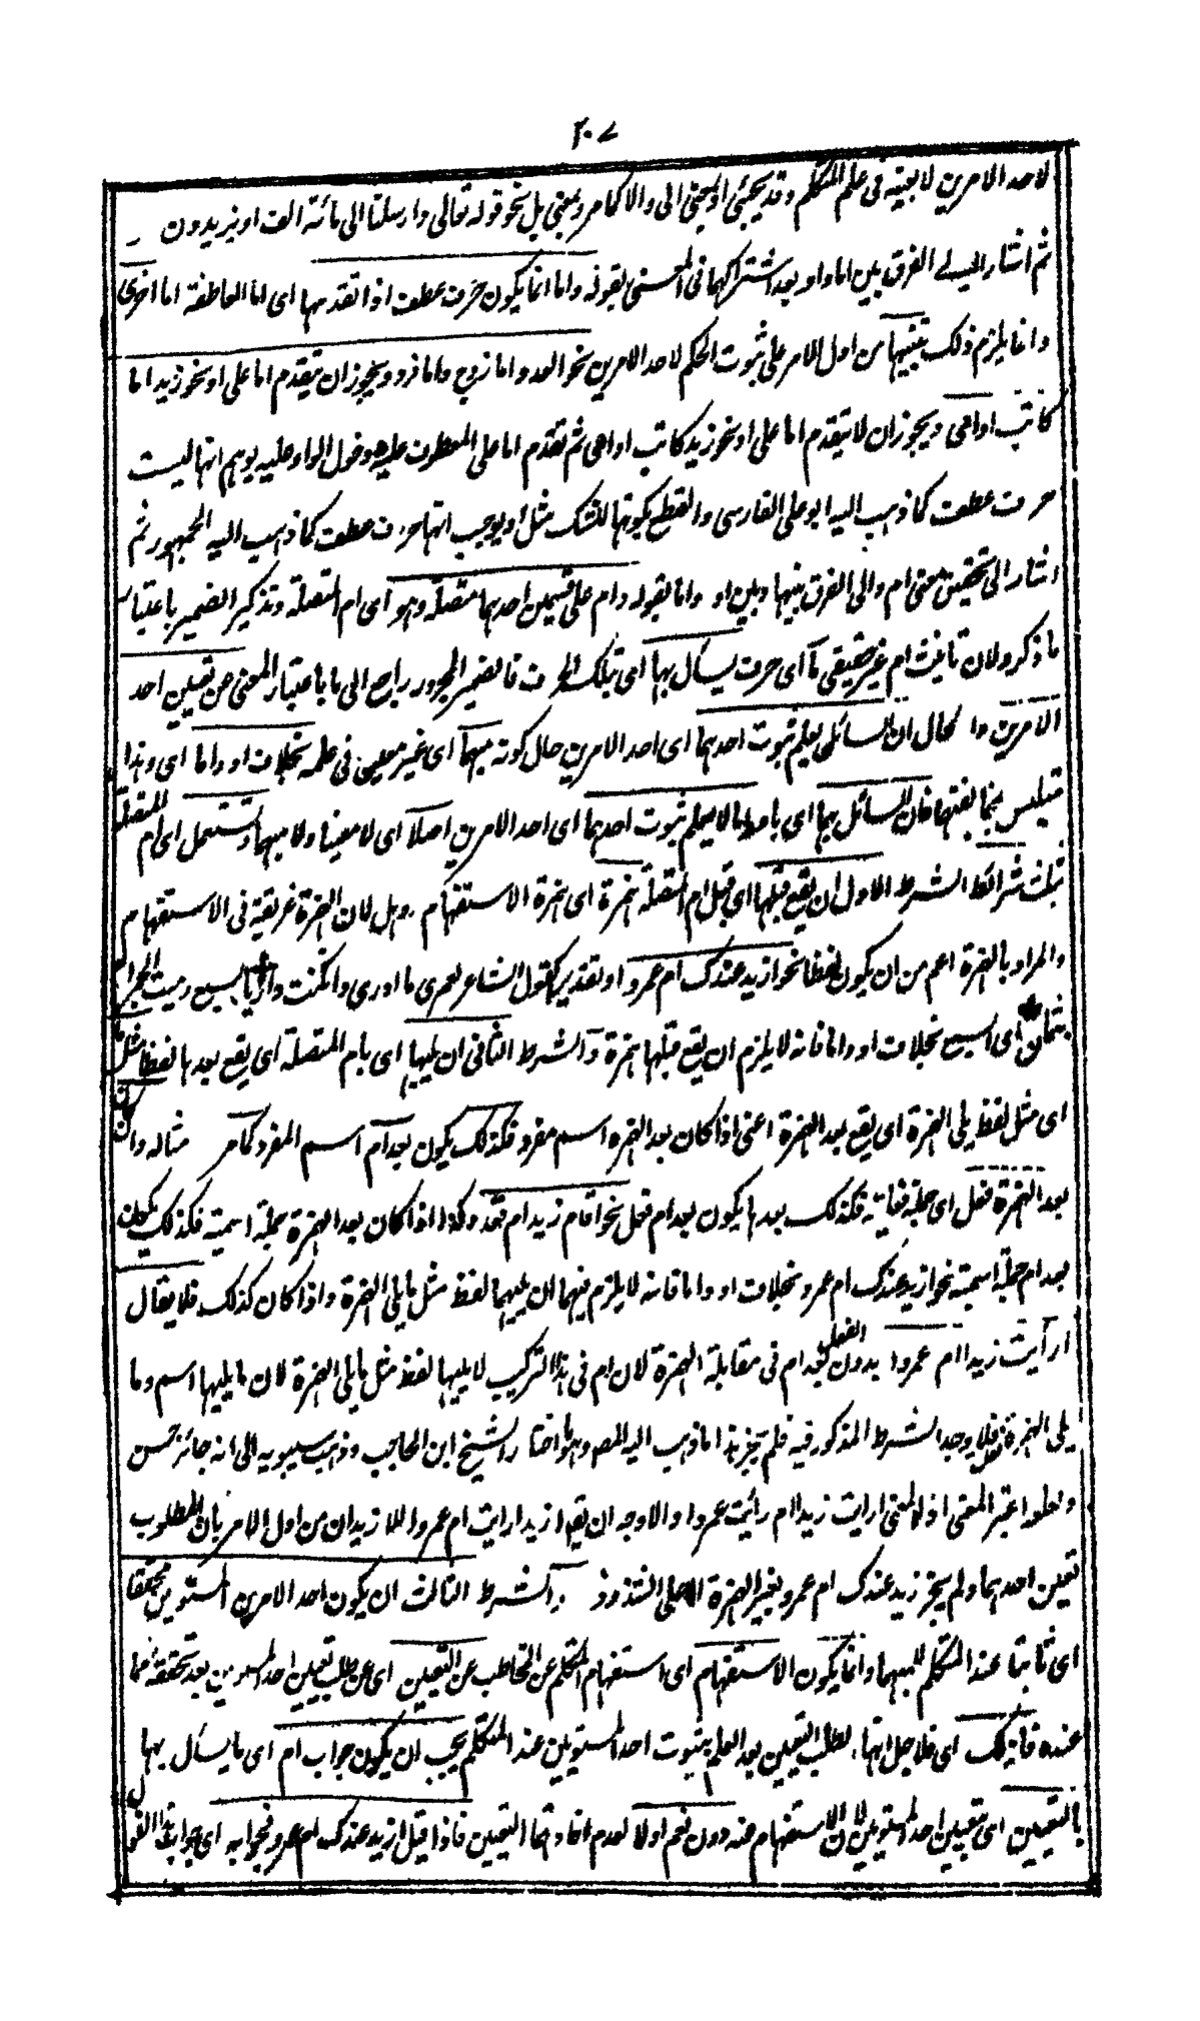 ٢٠٧
لاحد الامرين لا بعينه فى علم المتكلم وقد يجئى او بمعنى الى والا كما مر وبمعنى بل نحو قوله تعالى وارسلنا الى مائة الف او يزيدون
ثم اشار الى الفرق بين اما واو بعد اشتراكهما فى المعنى بقوله واما انما يكون حرف عطف اذا تقدمها اى اما العاطفة اما اخرى
وانما يلزم ذلك تنبيها من اول الامر على ثبوت الحكم لاحد الامرين نحو العدد اما زوج واما فرد ويجوز ان يتقدم اما على او نحو زيد اما
كاتب او امى ويجوز ان لا يتقدم اما على او نحو زيد كاتب او امى ثم تقدم اما على المعطوف عليه ودخول الواو عليه يوهم انها ليست
حرف عطف كما ذهب اليه ابو على الفارسى والقطع بكونها للشك مثل او يوجب انها حرف عطف كما ذهب اليه الجمهور ثم
اشار الى تحقيق معنى ام والى الفرق بينها وبين او واما بقوله وام على قسمين احدهما متصلة وهو اى ام المتصلة وتذكير الضمير باعتبار
ما ذكر ولان تانيث ام غير حقيقى ما اى حرف يسأل بها اى بتلك الحرف فالضمير المجرور راجع الى ما باعتبار المعنى عن تعيين احد
الامرين والحال ان السائل يعلم ثبوت احدهما اى احد الامرين حال كونه مبهما اى غير معين فى علمه بخلاف او واما اى وهذا
متلبس بمخالفتها فان السائل بهما اى باو واما لا يعلم ثبوت احدهما اى احد الامرين اصلا اى لا معينا ولا مبهما وتستعمل اى ام المتصلة
بثلث شرائط الشرط الاول ان يقع قبلها اى قبل ام المتصلة همزة اى همزة الاستفهام وهل لان الهمزة عريقة فى الاستفهام
والمراد بالهمزة اعم من ان يكون لفظا نحو ازيد عندك ام عمرو او تقديرا كقول الشاعر لعمرى ما ادرى وان كنت داريا بسبع رميت الجمر ام
بثمان اى اسبع بخلاف او واما فانه لا يلزم ان يقع قبلها همزة والشرط الثانى ان يليها اى بام المتصلة اى يقع بعدها لفظا مثل ما
اى مثل لفظ يلى الهمزة اى يقع بعد الهمزة اعنى اذا كان بعد الهمزة اسم مفرد فكذلك يكون بعد ام اسم المفرد كما مر مثاله وان كان
بعد الهمزة فعل اى جملة فعلية فكذلك بعدها يكون بعد ام فعل نحو اقام زيد ام قعد وكذا اذا كان بعد الهمزة جملة اسمية فكذلك يكون
بعد ام جملة اسمية نحو ازيد عندك ام عمرو بخلاف او واما فانه لا يلزم فيهما ان يليهما لفظ مثل ما يلى الهمزة واذا كان كذلك فلا يقال
ارأيت زيدا ام عمروا بدون الفعل بعد ام فى مقابلة الهمزة لان ام فى هذا التركيب لا يليها لفظ مثل ما يلى الهمزة لان ما يليها اسم وما
يلى الهمزة فعل فلا يوجد الشرط المذكور فيه فلم يجز هذا ما ذهب اليه المصـ وهو ما اختار الشيخ ابن الحاجب وذهب سيبويه الى انه جائز حسن
ولعله اعتبر المعنى اذ المعنى ارايت زيدا ام رأيت عمروا والاوجه ان يقع ازيدا رايت ام عمروا للايذان من اول الامر بان المطلوب
تعيين احدهما ولم يجز زيد عندك ام عمرو بغير الهمزة الا على الشذوذ والشرط الثالث ان يكون احد الامرين المستويين محققا
اى ثابتا عند المتكلم مبهما وانما يكون الاستفهام اى استفهام المتكلم عن المخاطب عن التعيين اى عن طلب تعيين احد الامرين بعد تحققهما
عنده فلذلك اى فلاجل انها لطلب التعيين بعد العلم بثبوت احد المستويين عند المتكلم يجب ان يكون جواب ام اى ما يسأل بها
بالتعيين اى بتعيين احد المستويين لان الاستفهام عنه دون نعم او لا لعدم افادتهما التعيين فاذا قيل ازيد عندك ام عمرو فجوابه اى جواب هذا القول